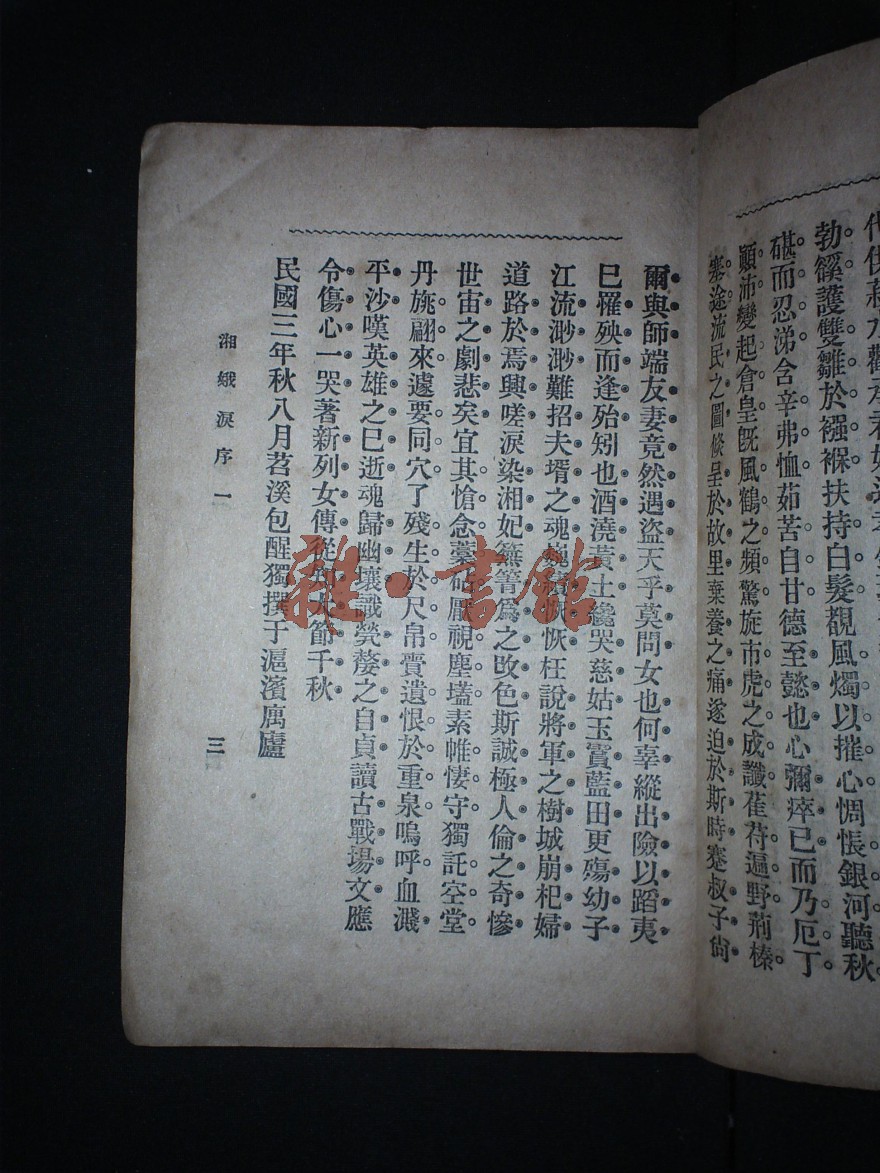 勃谿護雙雛於襁褓扶持白髮覩風燭以摧心惆悵銀河聽秋
碪而忍涕含辛弗恤茹苦自甘德至懿也心彌瘁已而乃厄丁
顚沛變起倉皇旣風鶴之頻驚旋市虎之成讖萑苻遍野荊榛
塞途流民之圖倏呈於故里棄養之痛遂迫於斯時蹇叔子尙
爾與師端友妻竟然遇盜天乎莫問女也何辜縱出險以蹈夷
已罹殃而逢殆矧也酒澆黃土纔哭慈姑玉寳藍田更殤幼子
江流渺渺難招夫壻之魂恢枉說將軍之樹城崩杞婦
道路於焉興嗟淚染湘妃篻簹爲之改色斯誠極人倫之奇慘
世宙之劇悲矣宜其愴念藁砧厭視塵壒素帷悽守獨託空堂
丹旐翩來遽要同穴了殘生於尺帛賫遺恨於重泉嗚呼血濺
平沙嘆英雄之已逝魂歸幽壤識煢嫠之自貞讀古戰場文應
令傷心一哭著新列女傳從大節千秋
民國三年秋八月苕溪包醒獨撰于滬濱寓廬
湘娥淚序一
三
雜·書館